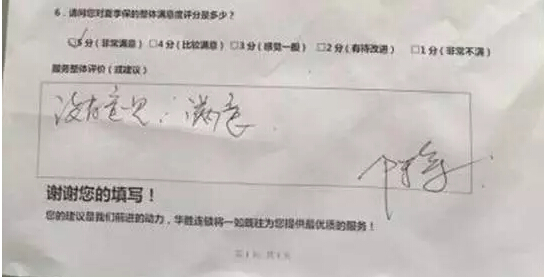 6、请问您对夏季保的整体满意度评分是多少？
☑5分（非常满意）□4分（比较满意）□3分（感觉一般）□2分（有待改进）□1分（非常不满）
服务整体评价（或建议）
没有意见，满意.
谢谢您的填写！
您的建议是我们前进的动力，华胜连锁将一如既往为您提供最优质的服务！